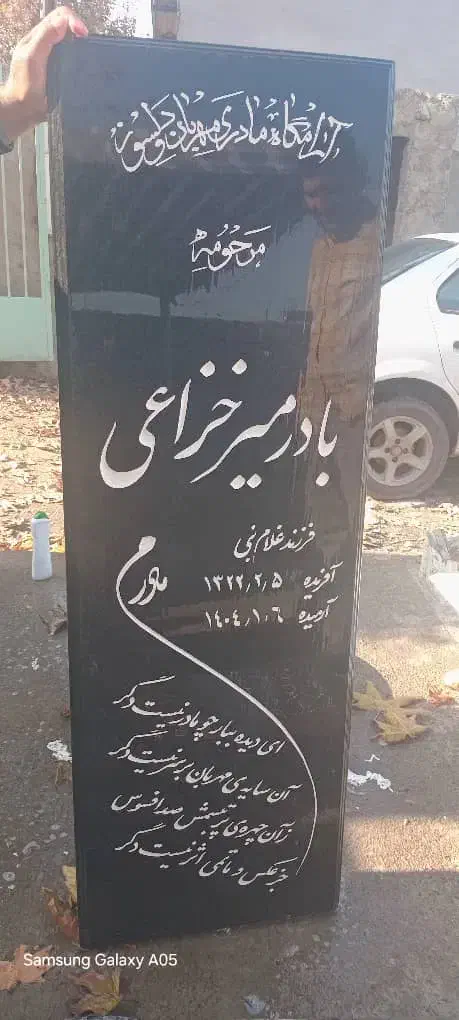 آرامگاه مادری مهربان و دلسوز
مرحومه
بادر میرخزاعی
فرزند غلام نبی
آفریده ۱۳۲۲٫۲٫۵
آرمیده ۱۴۰۴٫۱٫۶
مادرم
ای دیده ببار چو مادر نیست دگر
آن سایه‌ی مهربان بر سر نیست دگر
زآن چهره‌ی پر تبسمش صد افسوس
جز عکس و ماتمی اثر نیست دگر
Samsung Galaxy A05